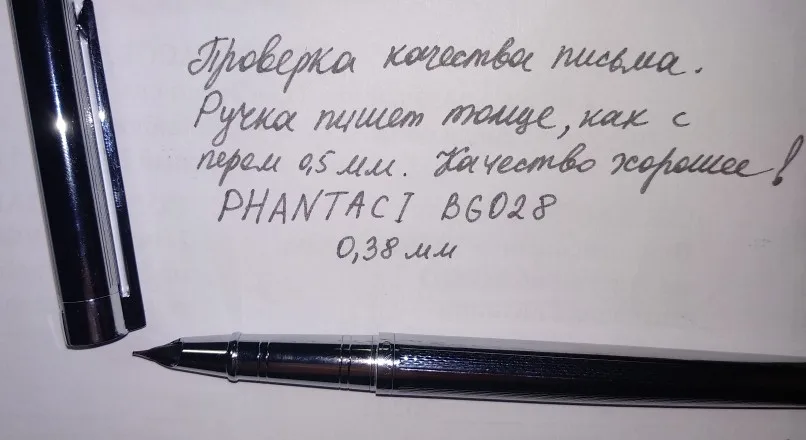 Проверка качества письма.
Ручка пишет толще, как с
пером 0,5 мм. Качество хорошее!
PHANTACI BG028
0,38 мм